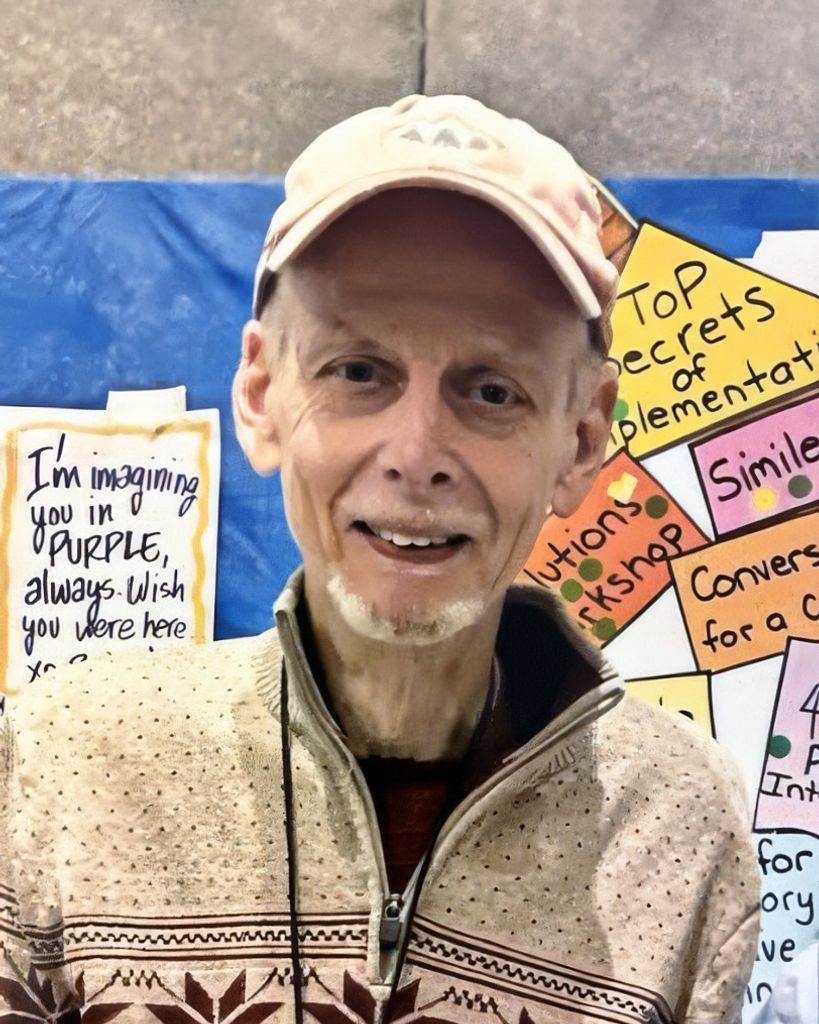 I'm imagining
you in
PURPLE,
always. Wish
you were here
ToP
Secrets
of
Simile
lutions
rkshop
Convers
for a C
4
P
Int
for
ory
ive
in